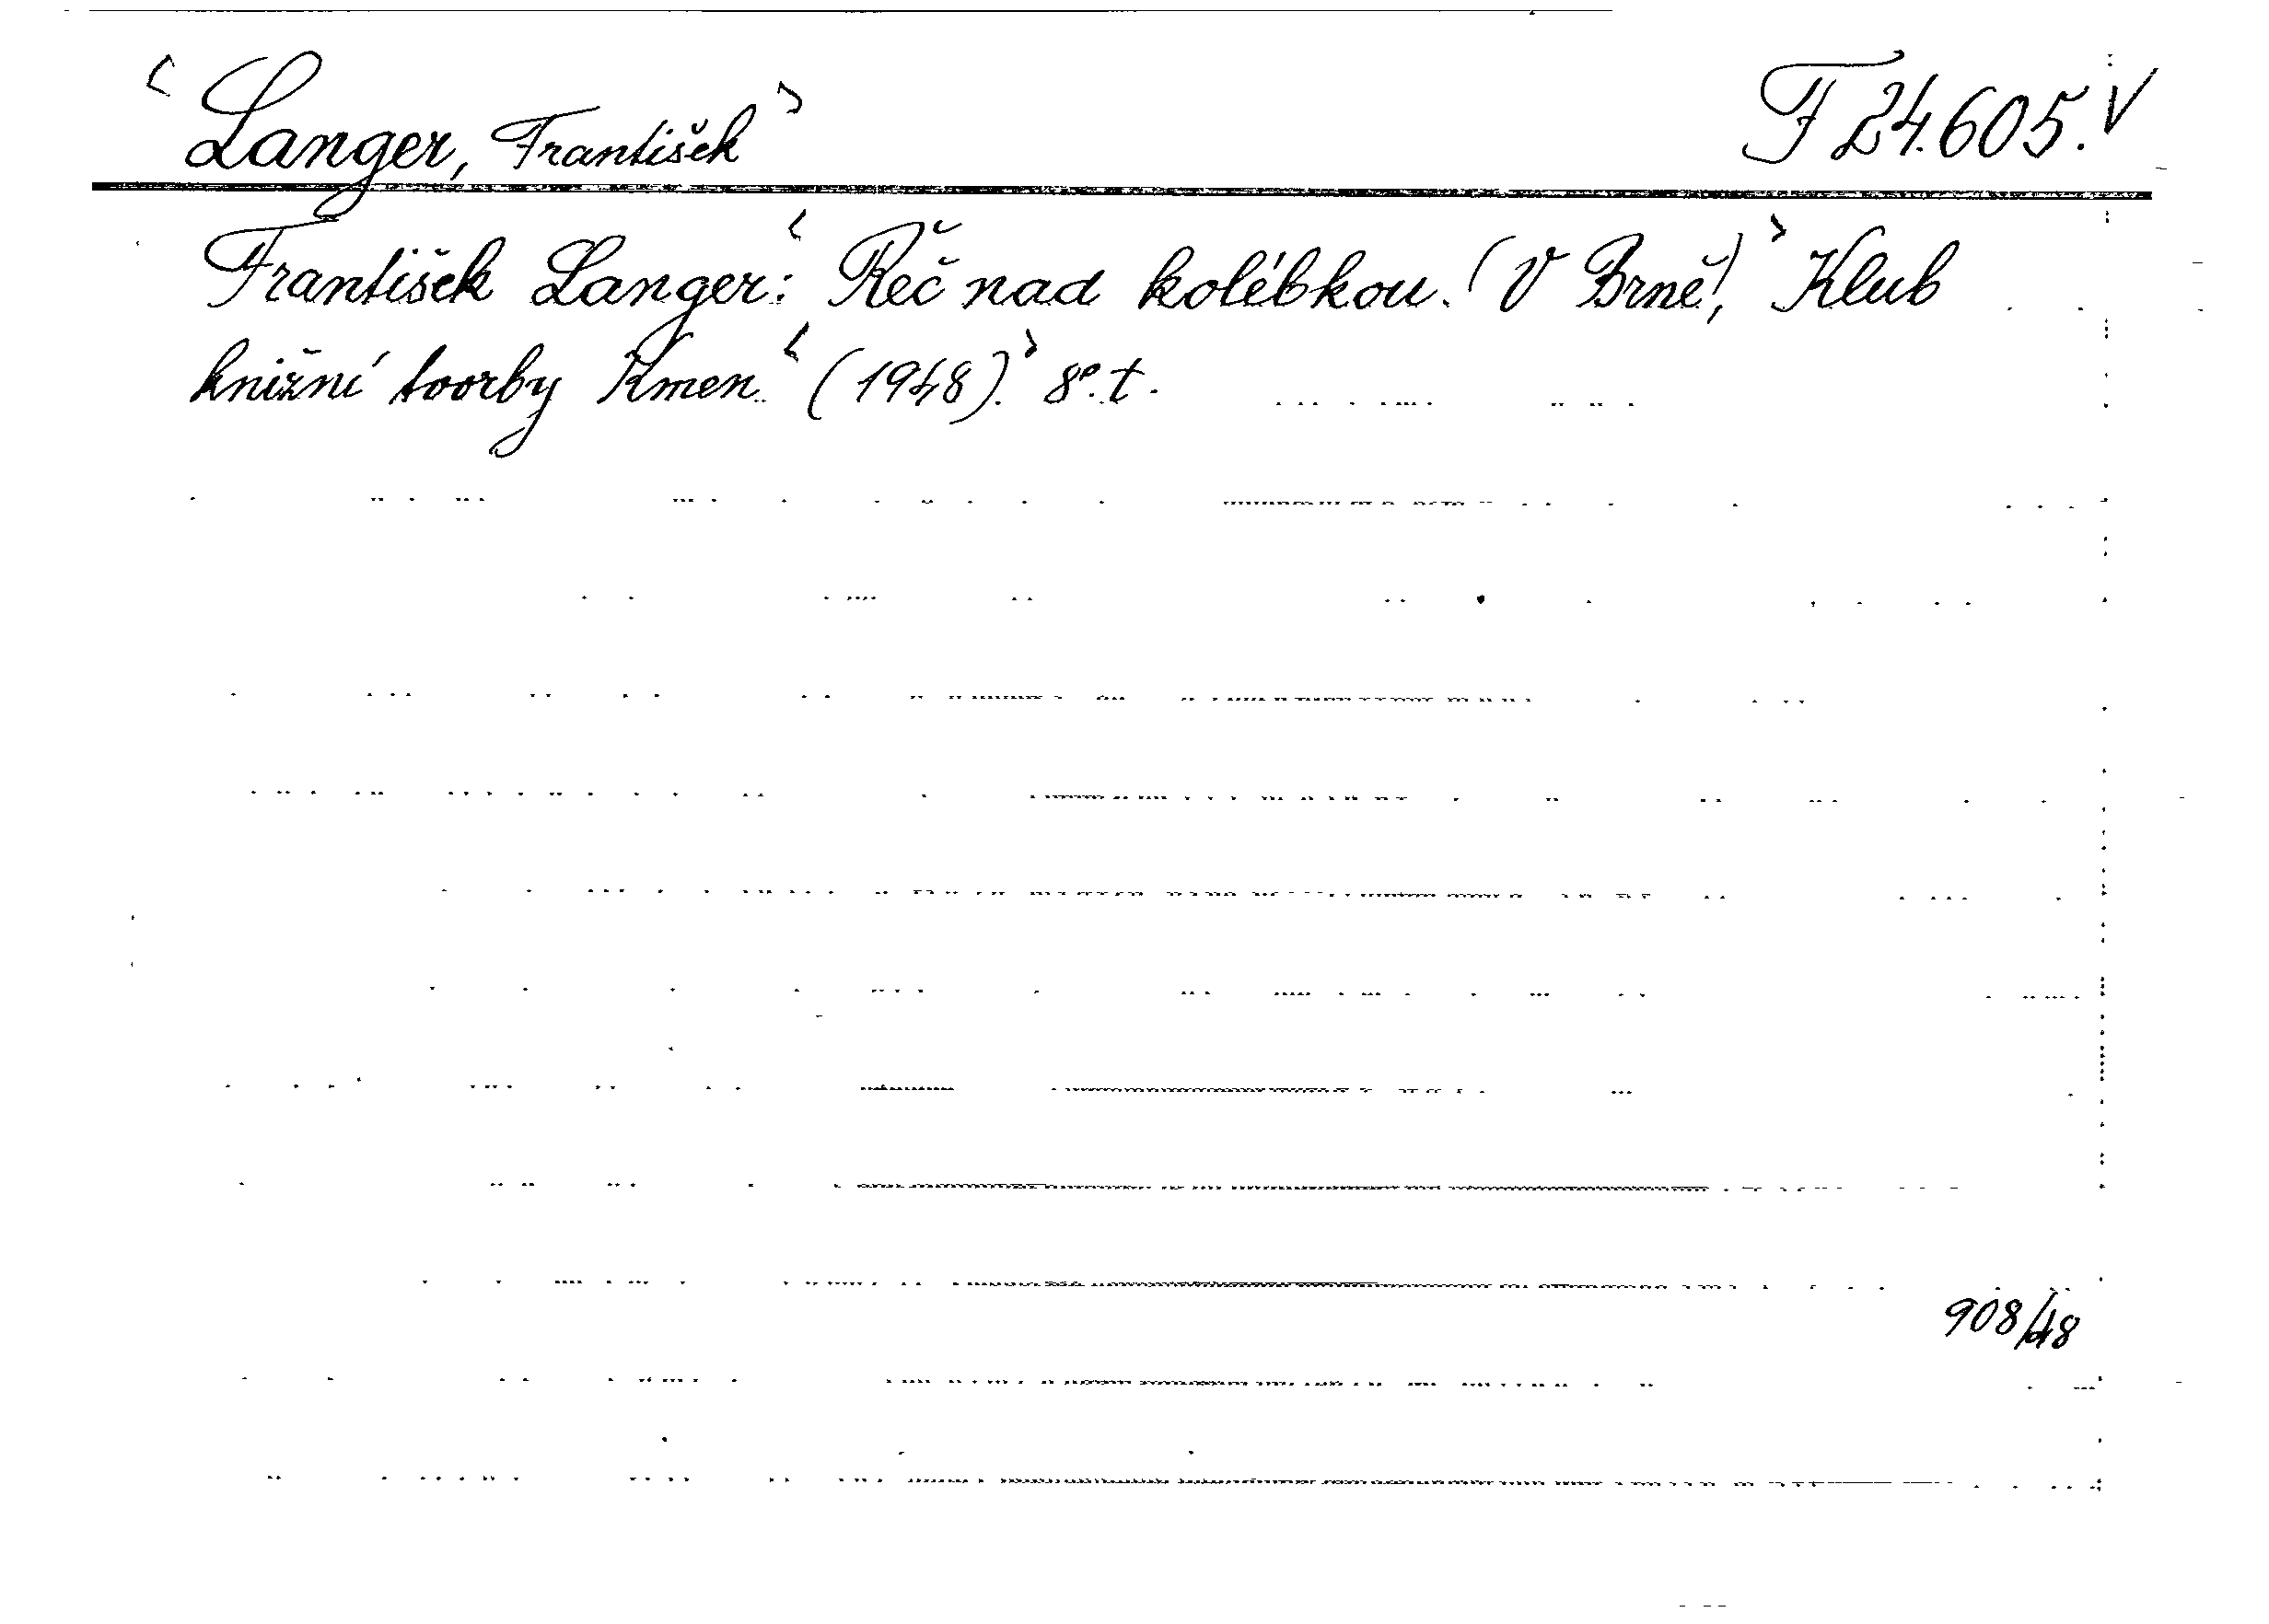 ‹Langer, František› F 24.605. V
František Langer:‹ Řeč nad kolébkou. (V Brně),› Klub
knižní tvorby Kmen.‹ (1948).› 8°. t.
908/48